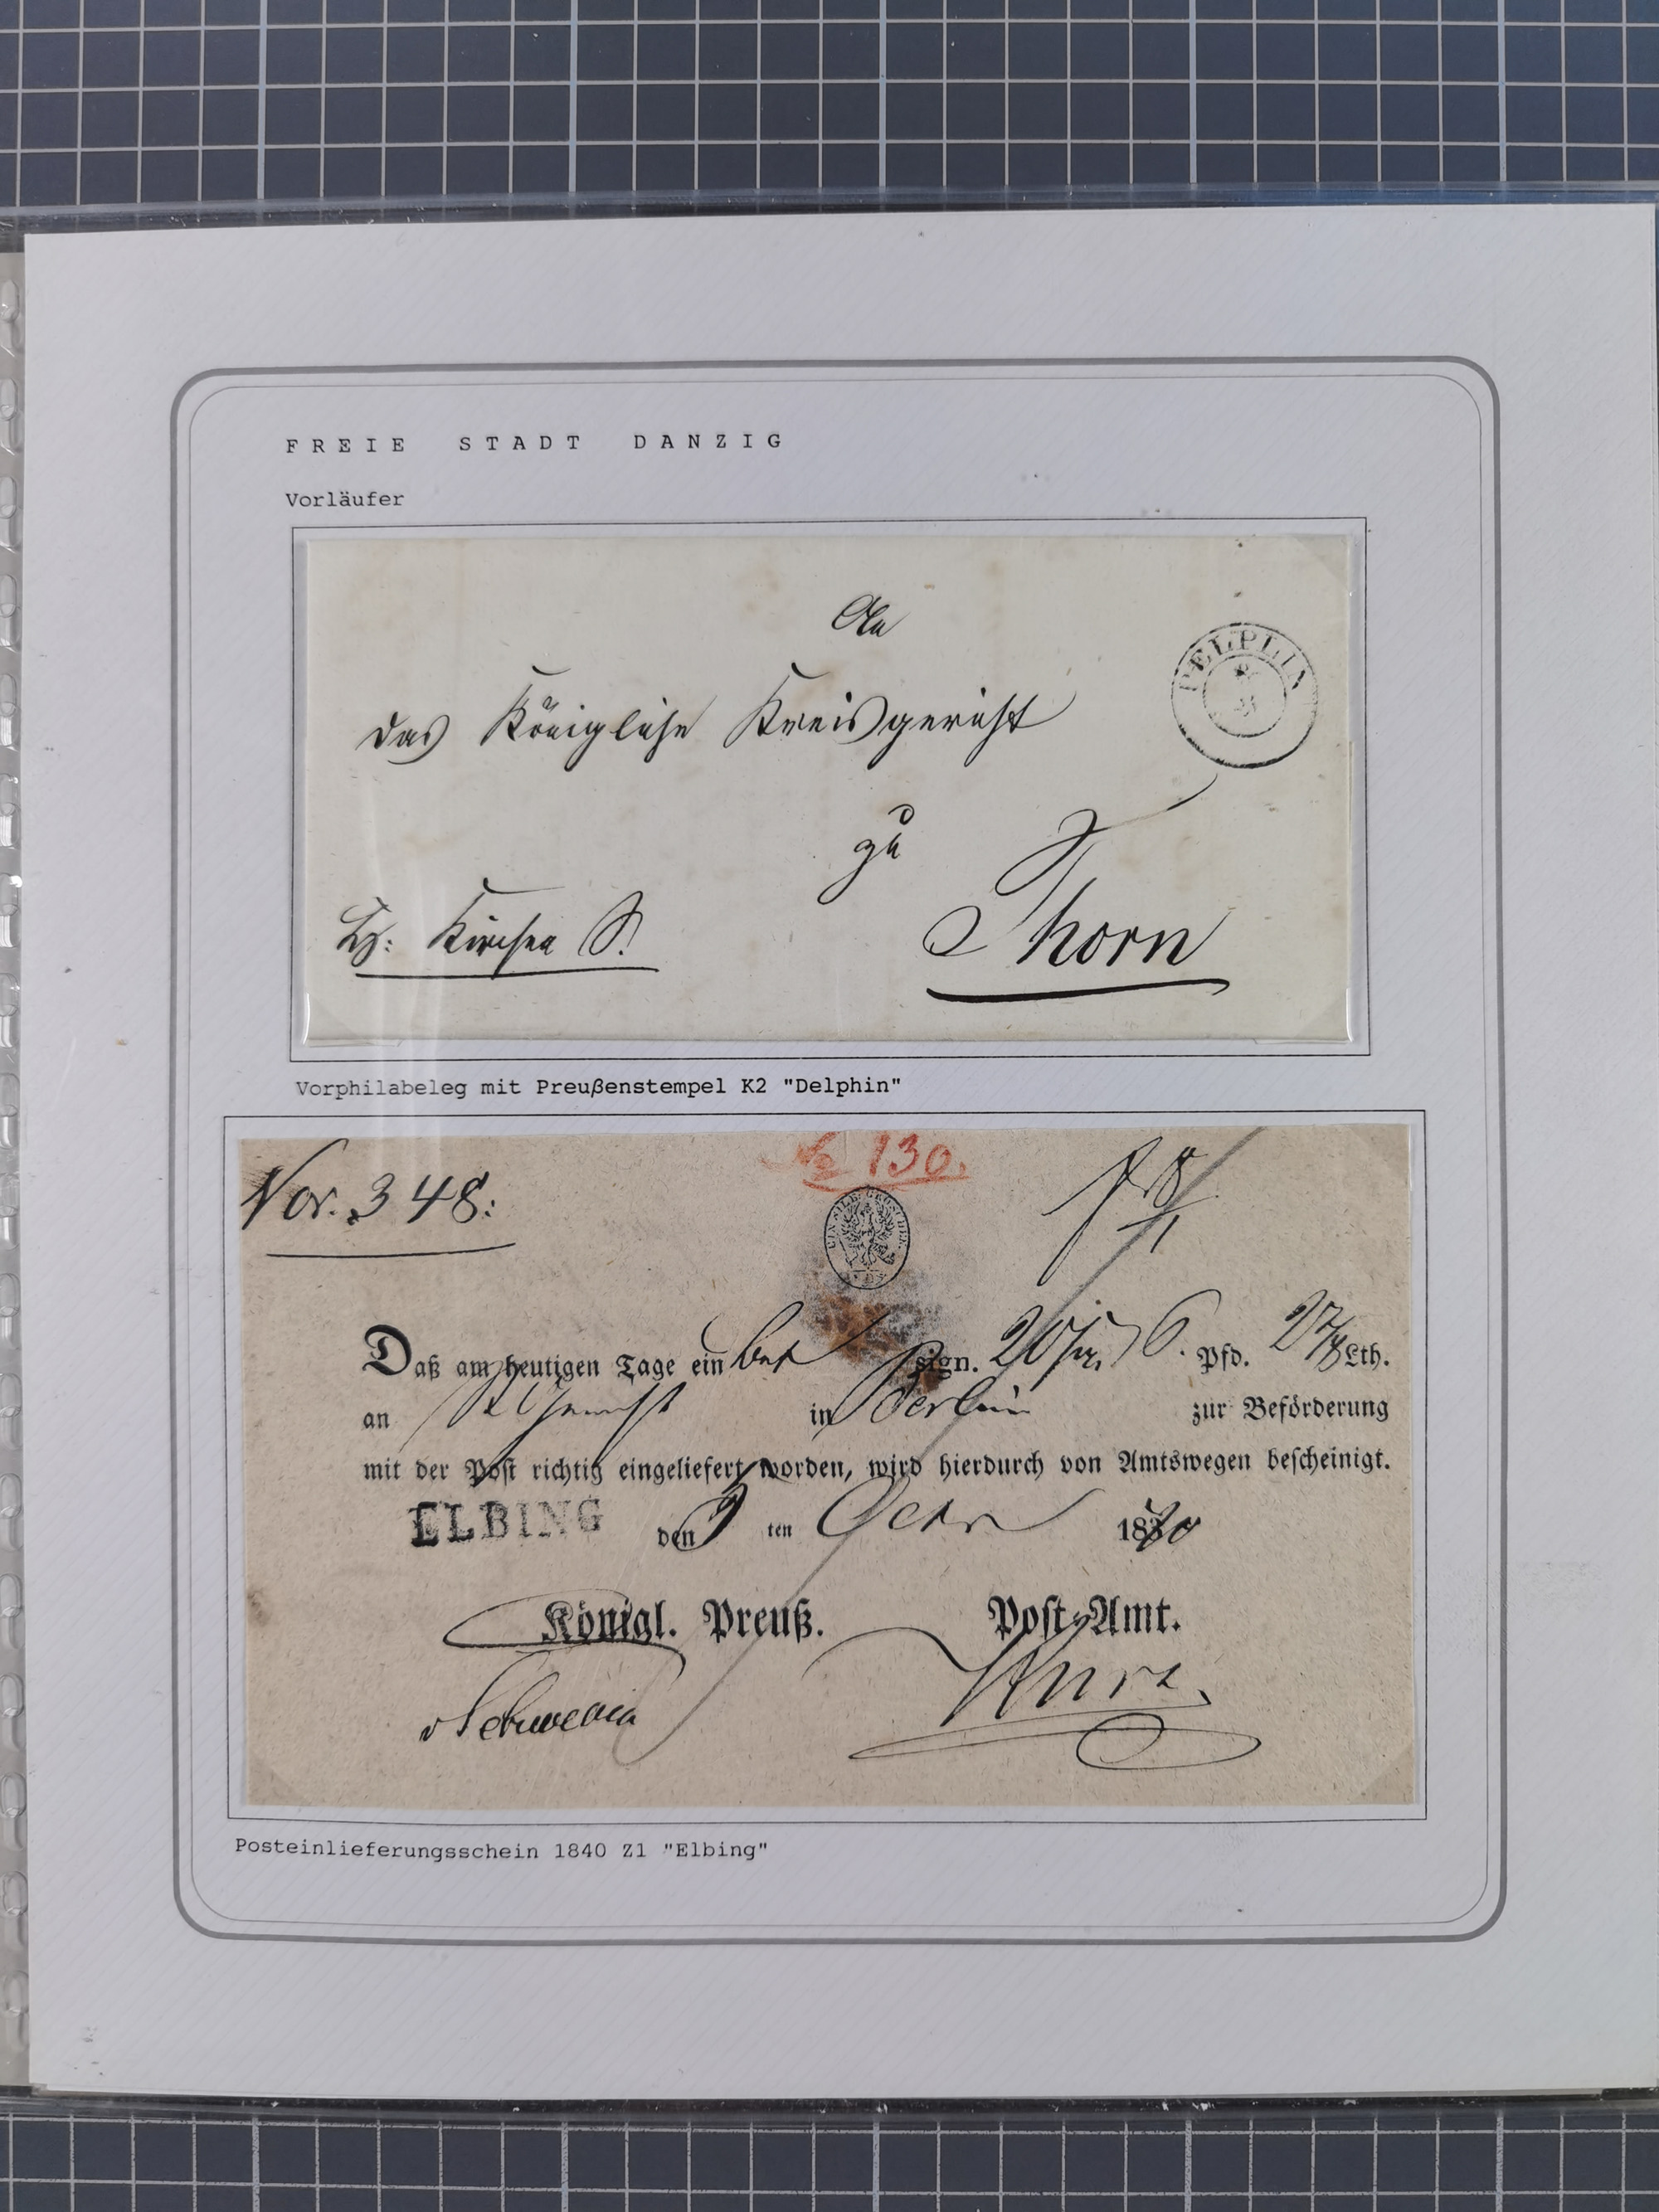 FREIE STADT DANZIG
Vorläufer
An
PELPLIN
das Königliche Kreisgericht
zu
Thorn
Kirchen S.
Vorphilabeleg mit Preußenstempel K2 "Delphin"
№ 130.
Nor. 348:
EIN SILB. GROSCHEN
Daß am heutigen Tage ein sign. 6. Pfd. Lth.
an in Berlin zur Beförderung
mit der Post richtig eingeliefert worden, wird hierdurch von Amtswegen bescheinigt.
ELBING den 9 ten Octr 1840
Königl. Preuß. Post-Amt.
Kurz.
Posteinlieferungsschein 1840 Z1 "Elbing"